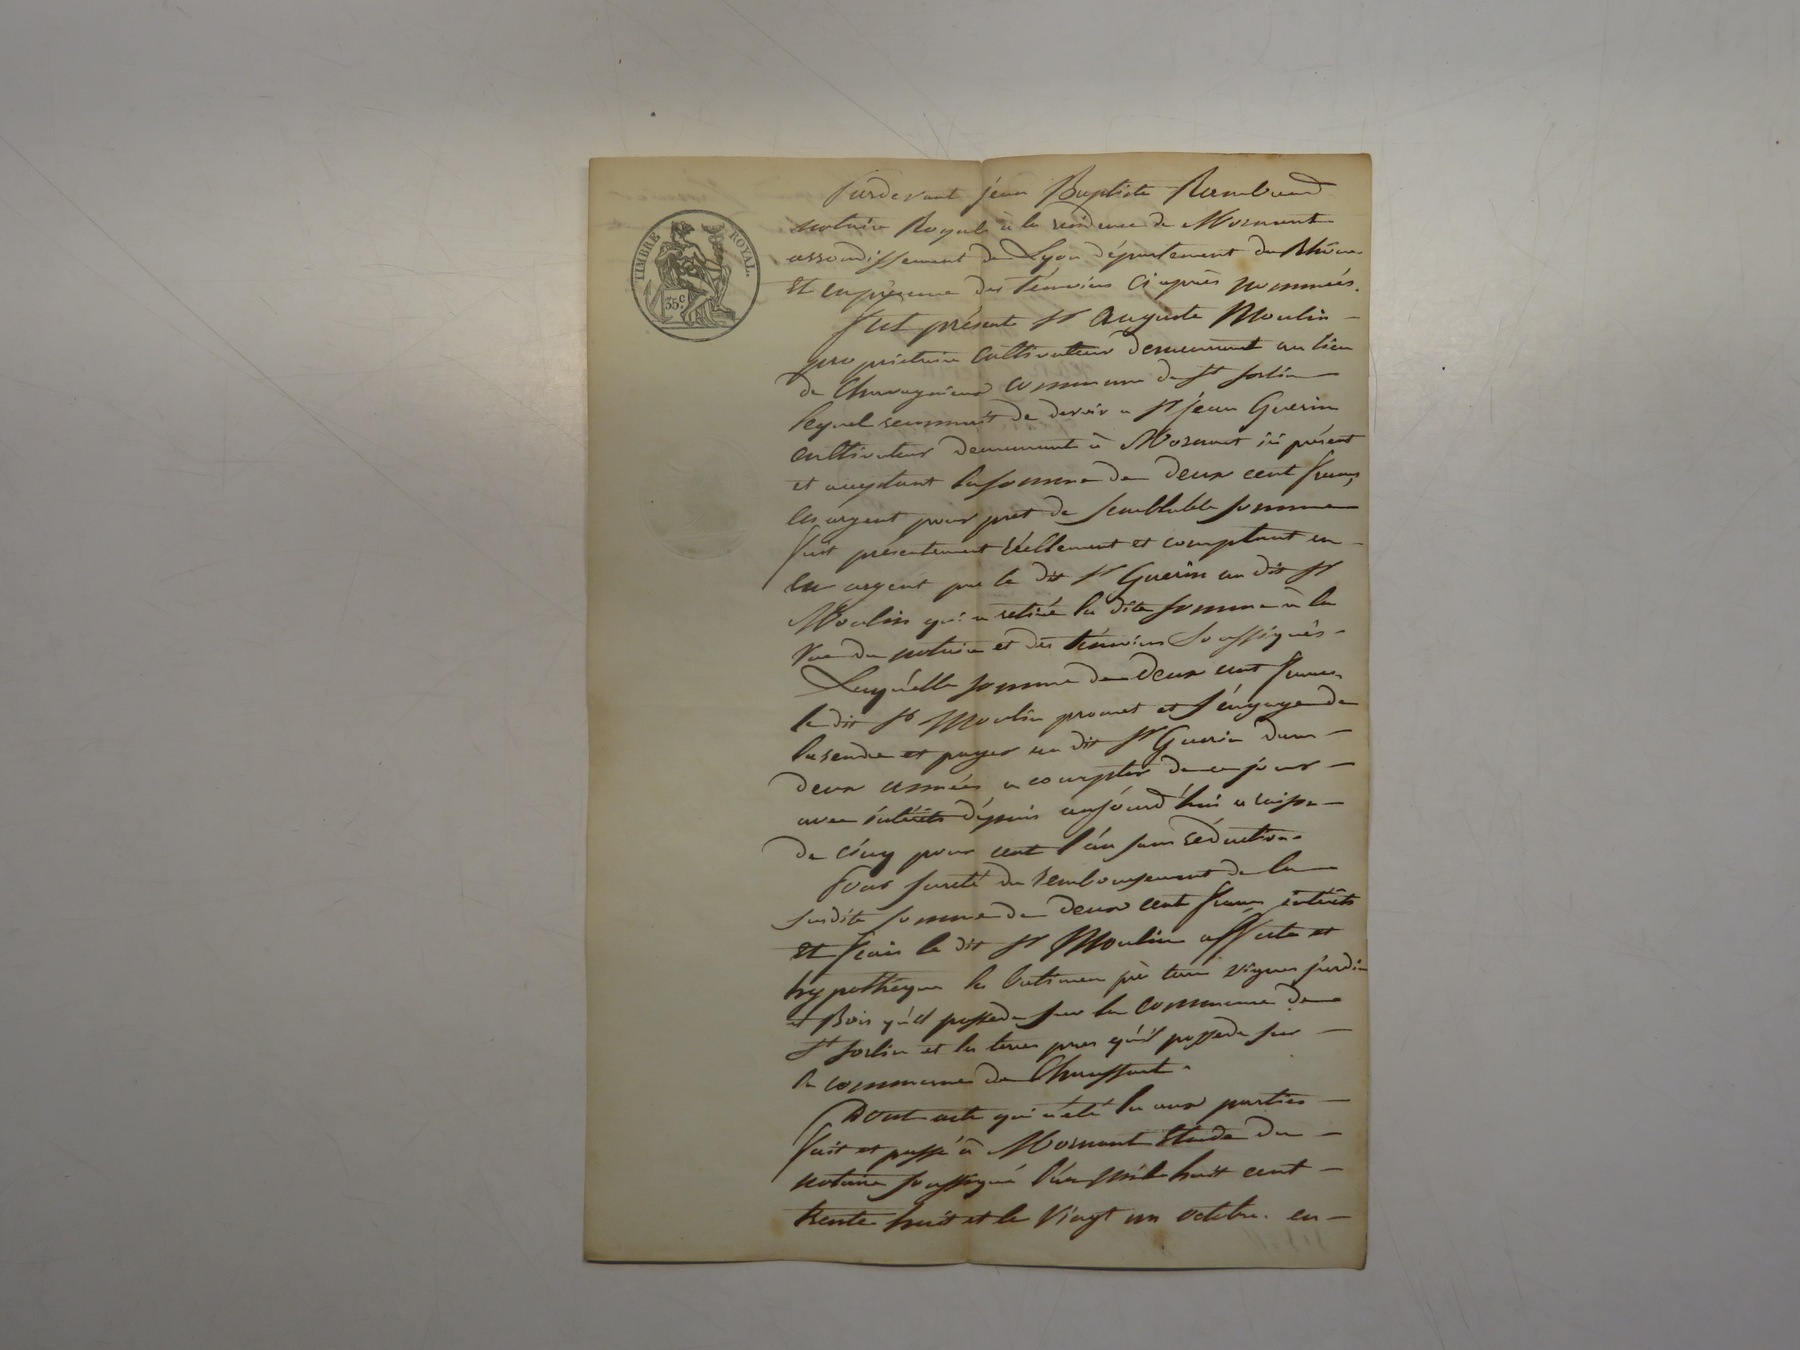 TIMBRE ROYAL.
35c
Pardevant jean Baptiste Rambaud
notaire Royal à la residence de Mornant
arrondissement de Lyon département du Rhône
Et en présence des témoins ci après nommés.
Fut présent Sr Auguste Moulin
propriétaire cultivateur demeurant au lieu
de commune de St Sorlin
lequel reconnait de devoir a Sr jean Guerin
cultivateur demeurant à Mornant ici présent
et acceptant la somme de deux cent francs
en argent pour pret de semblable somme
fait présentement réellement et comptant en
en argent par le dit Sr Guerin au dit Sr
Moulin qui a retiré la dite somme à la
vue du notaire et des témoins soussignés
Laquelle somme de deux cent francs
le dit Sr Moulin promet et s'éngage de
la rendre et payer au dit Sr Guerin dans
deux années a compter de ce jour
avec intérêts dépuis aujourd'hui a raison
de cinq pour cent l'an sans réduction.
Pour sureté du remboursement de la
susdite somme de deux cent francs intérêts
Et frais le dit Sr Moulin affecte et
hypotheque les batimen prè terre vignes jardin
et Bois qu'il possede sur la commune de
St Sorlin et les terres pres qu'il possede sur
la commune de Chaussant.
Dont acte qui a été lu aux parties
fait et passé à Mornant Etude du
notaire soussigné l'an mil huit cent
trente huit et le vingt un octobre. en